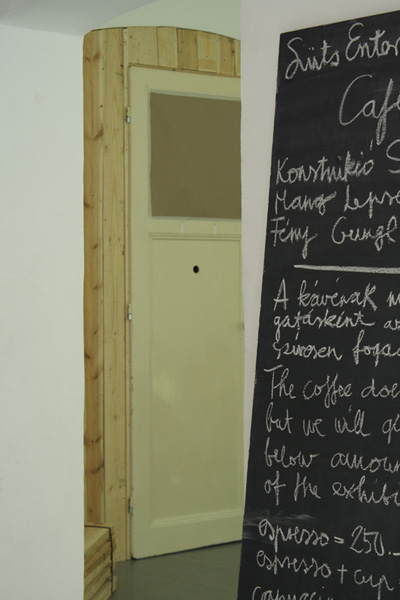 Süts Enter
Café
Konstrukió S
Hang Lepse
Fény Gungl
A kávénak n
gatásként az
Szívesen foga
The coffee doe
but we will gi
below amoun
of the exhibi
espresso = 250.-
espresso + cup =